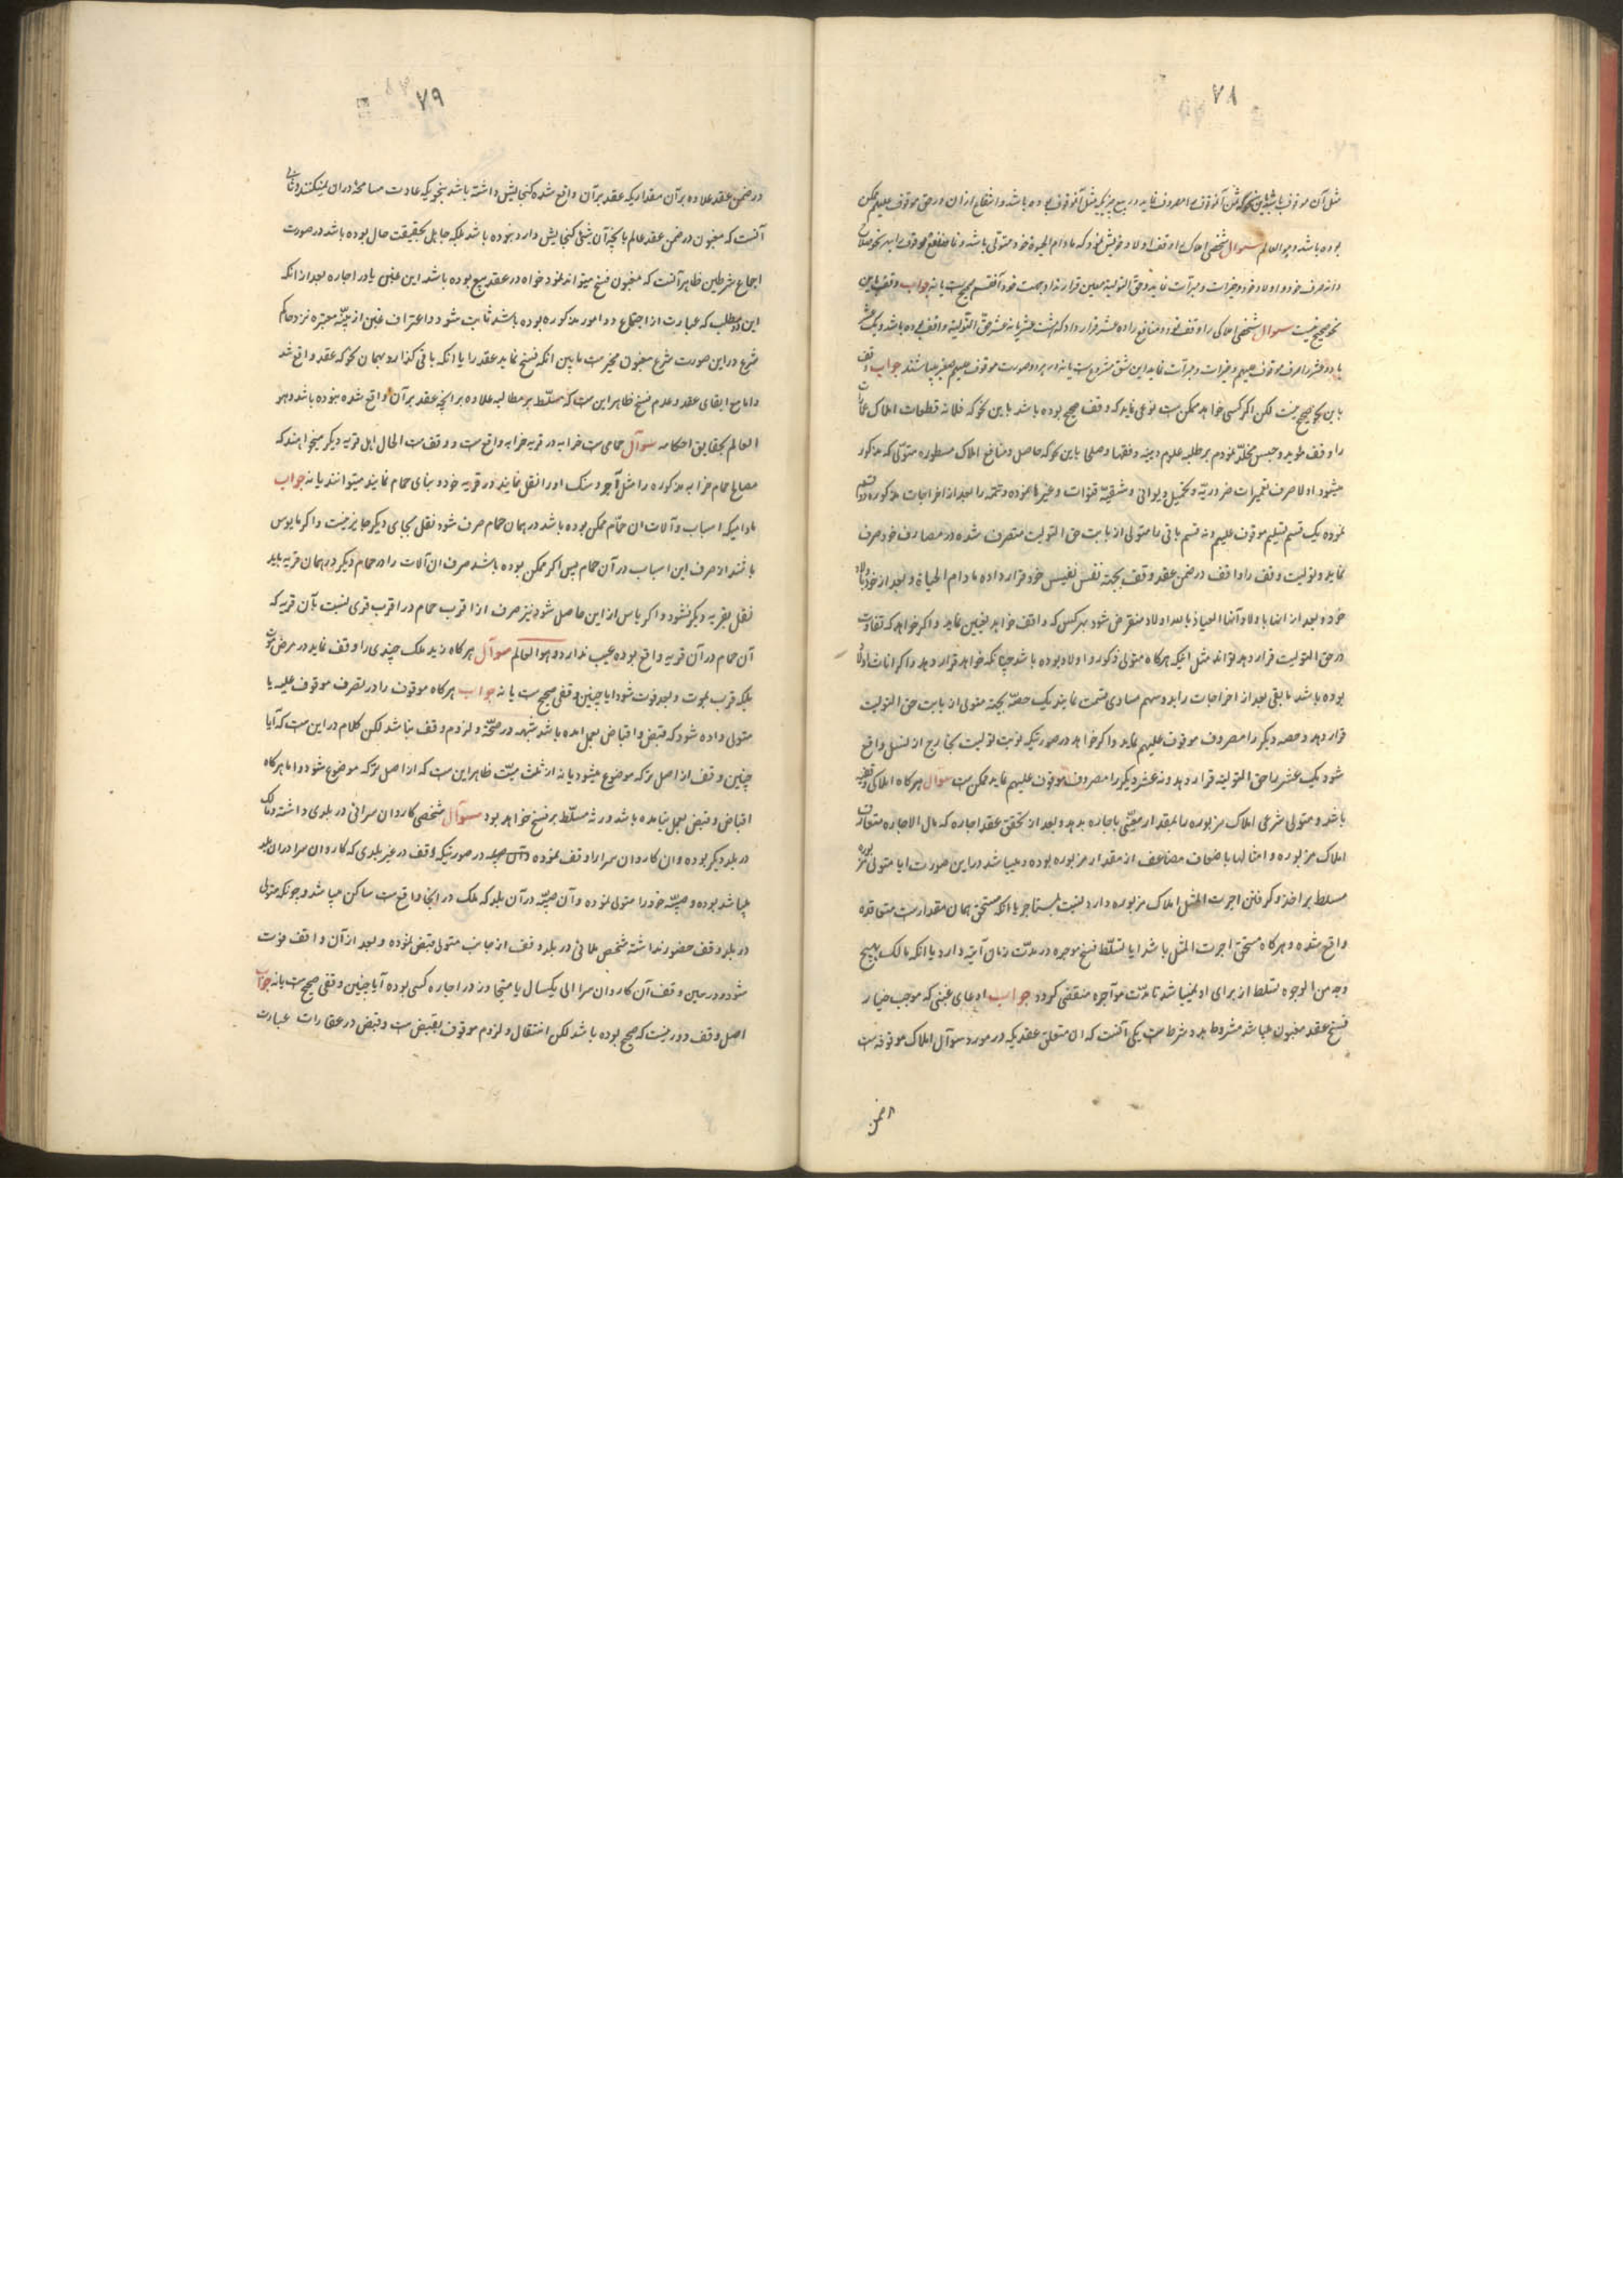 ۷۸
مثل آن موقوف باشد باین نحو که ثمن آنموقوفه را مصروف نماید در بیع چیزیکه مثل آنموقوفه بوده باشد و انتفاع از ان در حق موقوف علیهم ممکن
بوده باشد و هو العالم سوال شخصی املاکی را وقف اولاد خویش نمود که مادام الحیوة خود متولی باشد و منافع موقوفه را بهر نحو صلاح
داند صرف خود و اولاد خود و خیرات و مبرات نماید و حق التولیه معین قرار نداد بجهت خود آنقسم صحیح است یا نه جواب وقف باین
نحو صحیح نیست سوال شخصی املاکی را وقف نمود و منافع را ده عشر قرار داد که هشت عشر یا نه عشر حق التولیة واقف بوده باشد و یک عشر
یا دو عشر را صرف موقوف علیهم و خیرات و مبرات نماید این شق مشروع است یا نه در هر دو صورت موقوف علیهم صغیر میباشند جواب وقف
باین نحو صحیح نیست لکن اگر کسی خواهد ممکن است نوعی نماید که وقف صحیح بوده باشد باین نحو که فلانه قطعات املاک
را وقف مؤبد و حبس مخلد نمودم بر طلبه علوم دینیه و فقها و صلحا باین نحو که حاصل و منافع املاک مسطوره متولی که مذکور
میشود اولا صرف تعمیرات ضروریه و تحمیل دیوانی و تنقیه قنوات و غیرها نموده و تتمه را بعد از اخراجات مذکوره ده قسم
نموده یک قسم تسلیم موقوف علیهم و نه قسم باقی را متولی از بابت حق التولیت متصرف شده در مصارف خود صرف
نماید و تولیت وقف را واقف در ضمن عقد وقف بجهة نفس نفیس خود قرار داده مادام الحیاة و بعد از خود با اولاد
خود و بعد از انها با اولاد آنها العیاذ با بعد اولاد منقرض شود بهر کس که واقف خواهد تعیین نماید و اگر خواهد که تفاوت
در حق التولیت قرار دهد تواند مثل انیکه هرگاه متولی ذکور و اولاد بوده باشد چنانکه خواهد قرار دهد و اگر اناث اولاد
بوده باشد مابقی بعد از اخراجات را بدو سهم مساوی قسمت نمایند یک حصه بجهة متولی از بابت حق التولیت
قرار دهد و حصه دیگر را مصروف موقوف علیهم نماید و اگر خواهد در صورتیکه نوبت تولیت بخارج از نسل واقع
شود یک عشر را حق التولیه قرار دهد و نه عشر دیگر را مصروف موقوف علیهم نماید ممکن است سؤال هرگاه املاکی وقفی
باشد و متولی شرعی املاک مزبوره را بمقدار معینی باجاره بدهد و بعد از تحقق عقد اجاره که مال الاجاره متعارف
املاک مزبوره و امثالها باضعاف مضاعف از مقدار مزبوره بوده و میباشد در این صورت ایا متولی مزبوره
مسلط بر اخذ و گرفتن اجرت المثل املاک مزبوره دارد نسبت بمستاجر یا انکه مستحق همان مقدار است متعاقده
واقع شده و هرگاه مستحق اجرت المثل باشد ایا تسلط فسخ موجره در مدت زمان آتیه دارد یا انکه مالک بهیچ
وجه من الوجوه تسلط از برای او نمیباشد تا مدت موآجره منقضی گردد جواب ادعای غبنی که موجب خیار
فسخ عقد مغبون میباشد مشروط بدو شرط است یکی آنست که ان متعلق عقدیکه در مورد سوآل املاک موقوفه است
در ضمن
۷۹
در ضمن عقد علاوه بر آن مقداریکه عقد بر آن واقع شده گنجایش داشته باشد بنحویکه عادت مسامحة در ان نمیکنند و ثانی
آنست که مغبون در ضمن عقد عالم بانچه آن شئ گنجایش دارد نبوده باشد بلکه جاهل بحقیقت حال بوده باشد در صورت
اجماع شرطین ظاهر آنست که مغبون فسخ میتواند نمود خواه در عقد بیع بوده باشد این غبن یا در اجاره بعد از انکه
این دو مطلب که عبارت از اجتماع دو امور مذکوره بوده باشد ثابت شود و اعتراف غبن از بینه معتبره نزد حاکم
شرع در این صورت شرع مغبون مخیر است مابین انکه فسخ نماید عقد را یا انکه باقی گذارد بهمان نحو که عقد واقع شد
و اما مع ابقای عقد و عدم فسخ ظاهر این است که مسلط بر مطالبه علاوه بر انچه عقد بر آن واقع شده نبوده باشد و هو
العالم بحقایق احکامه سوآل حمامی است خرابه در قریه خرابه واقع است و وقف است الحال اهل قریه دیگر میخواهند که
مصالح حمام خرابه مذکوره را مثل آجر و سنگ اورا نقل نمایند در قریه خود و بنای حمام نمایند میتوانند یا نه جواب
مادامیکه اسباب و آلات ان حمام ممکن بوده باشد در همان حمام صرف شود نقل بجای دیگر جایز نیست و اگر مایوس
باشند از صرف این اسباب در آن حمام پس اگر ممکن بوده باشد صرف ان آلات را در حمام دیگر در همان قریه باید
نقل بقریه دیگر نشود و اگر یاس از این حاصل شود نیز صرف از اقرب حمام در اقرب قری نسبت بآن قریه که
آن حمام در آن قریه واقع بوده عیب ندارد و هو العالم سوآل هرگاه زید ملک چندی را وقف نماید در مرض موت
بلکه قرب بموت و بعد فوت شود ایا چنین وقفی صحیح است یا نه جواب هرگاه موقوف را در تصرف موقوف علیه یا
متولی داده شود که قبض و اقباض بعمل امده باشد شبهه در صحة و لزوم وقف نباشد لکن کلام در این است که آیا
چنین وقف از اصل ترکه موضوع میشود یا نه از ثلث میت ظاهر این است که از اصل ترکه موضوع شود و اما هرگاه
اقباض و قبض بعمل نیامده باشد ورثه مسلط بر فسخ خواهد بود سوآل شخصی کاروان سرائی در بلدی داشته و مالک
در بلد دیگر بوده و ان کاروان سرا را وقف نموده در صورتیکه واقف در غیر بلدی که کاروان سرا در ان بلد
میباشد بوده و صبیه خود را متولی نموده و آن صبیه در آن بلد که ملک در انجا واقع است ساکن میباشد و چونکه متولی
در بلد وقف حضور نداشته شخص ملائی در بلد وقف از جانب متولی قبض نموده و بعد از آن واقف فوت
شود و در حین وقف آن کاروان سرا الی یکسال یا متجاوز در اجاره کسی بوده آیا چنین وقفی صحیح است یا نه جواب
اصل وقف دور نیست که صحیح بوده باشد لکن انتقال و لزوم موقوف بقبض است و قبض در عقارات عبارت